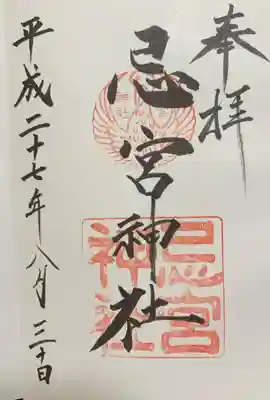 奉拝
忌宮神社
忌宮
神社
平成二十七年八月三十日